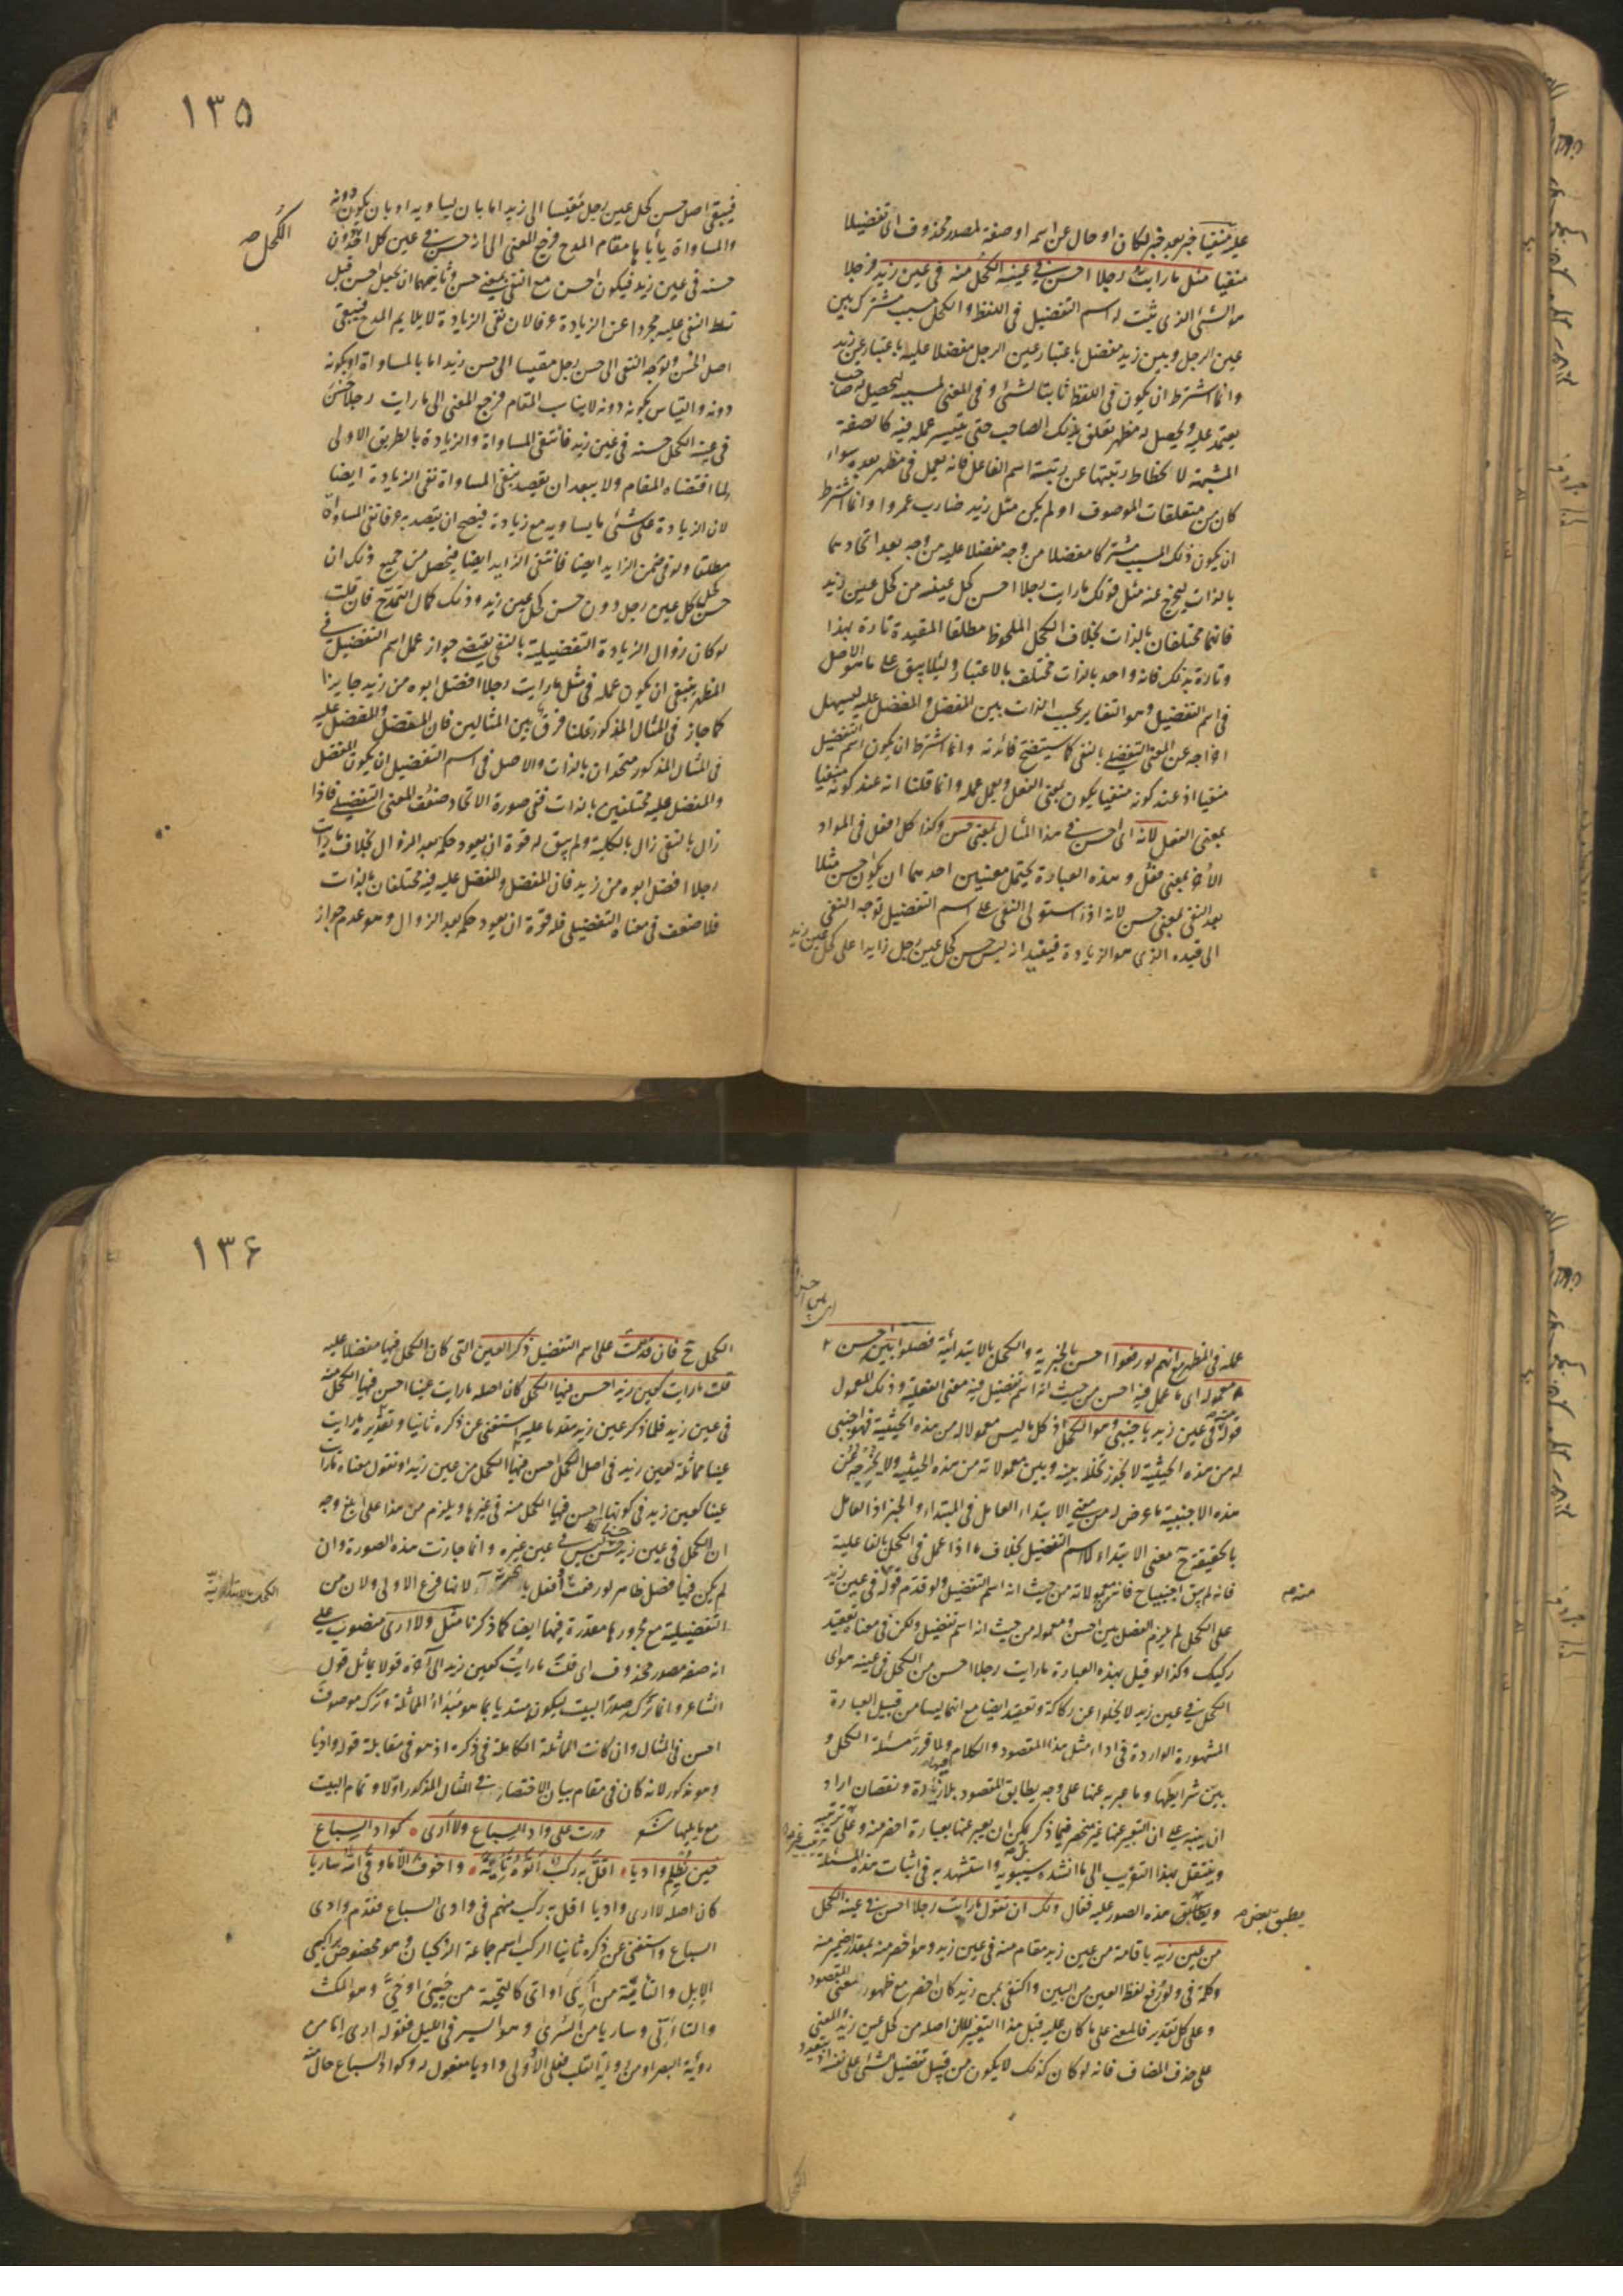 ١٣٥
عليه منفيا خبر بعد خبر لكان او حال عن اسمه او صفة لمصدر محذوف اى تفضيلا
منفيا مثل ما رايت رجلا احسن فى عينه الكحل منه فى عين زيد فرجلا
هو الشئ الذى ثبت له اسم التفضيل فى اللفظ والكحل مسبب مشترك بين
عين الرجل وبين زيد مفضل باعتبار عين الرجل مفضلا عليه باعتبار عين زيد
وانما اشترط ان يكون فى اللفظ ثابتا لشئ وفى المعنى لمسببه ليحصل له صاحب
يعتمد عليه ويحصل له مظهر تعلق بذلك الصاحب حتى يتيسر عمله فيه كالصفة
المشبهة لانحطاط رتبتها عن رتبة اسم الفاعل فانه يعمل فى مظهر بعده سواء
كان من متعلقات الموصوف او لم يكن مثل زيد ضارب عمروا وانما اشترط
ان يكون ذلك المسبب مشتركا مفضلا من وجه مفضلا عليه من وجه بعد اتحادهما
بالذات ليخرج عنه مثل قولك ما رايت رجلا احسن كحل عينه من كحل عين زيد
فانهما مختلفان بالذات بخلاف الكحل الملحوظ مطلقا المقيد تارة بهذا
وتارة بذلك فانه واحد بالذات مختلف بالاعتبار ولئلا يبقى على ما هو الاصل
فى اسم التفضيل وهو التغاير بحسب الذات بين المفضل والمفضل عليه ليسهل
اخراجه عن المعنى التفضيلى بالنفى كما سيتضح فائدته وانما اشترط ان يكون اسم التفضيل
منفيا اذ عند كونه منفيا يكون بمعنى الفعل ويعمل عمله وانما قلنا انه عند كونه منفيا
بمعنى الفعل لانه اى احسن فى هذا المثال بمعنى حسن وكذا كل افعل فى المواد
الاخر بمعنى فعل وهذه العبارة يحتمل معنيين احدهما ان يكون احسن مثلا
بعد النفى بمعنى حسن لانه اذا استولى النفى على اسم التفضيل توجه النفى
الى قيده الذى هو الزيادة فيفيد انه ليس حسن كحل عين رجل زايدا على كحل عين زيد
فيبقى اصل حسن كحل عين رجل مقيسا الى زيد اما بان يساويه او بان يكون دونه
والمساواة يأباها مقام المدح فرجع المعنى الى انه حسن فى عين كل احد دون
الكحل صح
حسنه فى عين زيد فيكون احسن مع النفى بمعنى حسن وثانيهما ان يجعل احسن قبل
تسلط النفى عليه مجردا عن الزيادة عرفا لان نفى الزيادة لا يلايم المدح فيبقى
اصل الحسن وتوجه النفى الى حسن رجل مقيسا الى حسن زيد اما بالمساواة او بكونه
دونه والقياس بكونه دونه لا يناسب المقام فرجع المعنى الى ما رايت رجلا حسن
فى عينه الكحل حسنه فى عين زيد فانتفى المساواة والزيادة بالطريق الاولى
لما اقتضاه المقام ولا يبعد ان يقصد بنفى المساواة نفى الزيادة ايضا
لان الزيادة على شئ ما يساويه مع زيادة فيصح ان يقصد به عرفا نفى المساواة
مطلقا ولو فى ضمن الزايد ايضا فانتفى الزايد ايضا فيحصل من جميع ذلك ان
حسن كحل كل عين رجل دون حسن كحل عين زيد وذلك كمال التمدح فان قلت
لو كان زوال الزيادة التفضيلية بالنفى يقتضى جواز عمل اسم التفضيل فى
المظهر ينبغى ان يكون عمله فى مثل ما رايت رجلا افضل ابوه من زيد جايزا
كما جاز فى المثال المذكور قلنا فرق بين المثالين فان المفضل والمفضل عليه
فى المثال المذكور متحدان بالذات والاصل فى اسم التفضيل ان يكون المفضل
والمفضل عليه مختلفين بالذات ففى صورة الاتحاد ضعف المعنى التفضيلى فاذا
زال بالنفى زال بالكلية ولم يبق له قوة ان يعود حكمه بعد الزوال بخلاف ما رايت
رجلا افضل ابوه من زيد فان المفضل والمفضل عليه فيه مختلفان بالذات
فلا ضعف فى معناه التفضيلى فله قوة ان يعود حكمه بعد الزوال وهو عدم جواز
١٣٦
عمله فى المظهر مع انهم لو رفعوا احسن بالخبرية والكحل بالابتدائية فصلوا بين احسن
ومعموله اى ما عمل فيه احسن من حيث انه اسم تفضيل فيه معنى الفعلية وذلك المعمول
قوله منه فى عين زيد باجنبى وهو الكحل اذ كل ما ليس معمولا له من هذه الحيثية فهو اجنبى
له من هذه الحيثية لا يجوز تخلله بينه وبين معمولاته من هذه الحيثية ولا يخرجه عن
هذه الاجنبية ما عرض له من معنى الابتداء العامل فى المبتداء والخبر اذ العامل
بالحقيقة ح معنى الابتداء لا اسم التفضيل بخلاف ما اذا عمل فى الكحل بالفاعلية
فانه لم يبق اجنبيا ح فانه من معمولاته من حيث انه اسم التفضيل ولو قدم قوله فى عين زيد
منه صح
على الكحل لم يلزم الفصل بين احسن ومعموله من حيث انه اسم تفضيل ولكن فى معناه تعقيد
ركيك وكذا لو قيل بهذه العبارة ما رايت رجلا احسن من الكحل فى عينه هو اى
الكحل فى عين زيد لا يخلوا عن ركاكة وتعقيد ايضا مع انهما ليسا من قبيل العبارة
المشهورة الواردة فى اداء مثل هذا المقصود والكلام فيها ولما قرر مسئلة الكحل و
بين شرايطها وما عبر به عنها على وجه يطابق المقصود بلا زيادة ونقصان اراد
ان ينبه على ان التعبير عنها غير منحصر فيما ذكر بل يمكن ان يعبر عنها بعبارة اخصر منه وعلى ترتيب
وينتقل بهذا التقريب الى ما انشده سيبويه واستشهد به فى اثبات هذه المسئلة
ويطابق هذه الصور عليه فقال ولك ان تقول ما رايت رجلا احسن فى عينه الكحل
من عين زيد باقامة من عين زيد مقام منه فى عين زيد وهو اخصر منه بمقدار ضمير منه
وكلمة فى ولو رفع لفظ العين من البين واكتفى بمن زيد كان اخصر مع ظهور المعنى المقصود
وعلى كل تقدير فالمعنى على ما كان عليه قبل هذا التغيير لا ان اصله من كحل عين زيد والمعنى
على حذف المضاف فانه لو كان كذلك لا يكون من قبيل تفضيل الشئ على نفسه
الكحل ح فان قدمت على اسم التفضيل ذكر العين التى كان الكحل فيها مفضلا عليه
قلت ما رايت كعين زيد احسن فيها الكحل كان اصله ما رايت عينا احسن فيها الكحل منه
فى عين زيد فلما ذكر عين زيد مقدما عليه استغنى عن ذكره ثانيا وتقديره ما رايت
عينا مماثلة لعين زيد فى اصل الكحل احسن فيها الكحل من عين زيد او نقول معناه ما رايت
عينا كعين زيد فى كونها احسن فيها الكحل منه فى غيرها ويلزم من هذا على ابلغ وجه
ان الكحل فى عين زيد حسنا ليس فى عين غيره وانما جازت هذه الصورة وان
لم يكن فيها فصل ظاهر لو رفعت افعل بالخبرية لانها فرع الاولى ولان من
التفضيلية مع مجرورها مقدرة فيها ايضا كما ذكرنا مثل ولا ارى منصوب على
انه صفة مصدر محذوف اى قلت ما رايت كعين زيد الى آخره قولا يماثل قول
الشاعر وانما ترك صدر البيت ليكون مبتدأ بما هو مبدأ المماثلة وترك موصوف
احسن فى المثال وان كانت المماثلة الكاملة فى ذكره اذ هو فى مقابلة قوله واديا
وهو مذكور لانه كان فى مقام بيان الاختصار فى المثال المذكور اولا وتمام البيت
مع ما يليها شعر مررت على وادى السباع ولا ارى كوادى السباع
حين يظلم واديا اقل به ركب اتوه تاية واخوف الا ما وقى الله ساريا
كان اصله لا ارى واديا اقل به ركب منهم فى وادى السباع فقدم وادى
السباع واستغنى عن ذكره ثانيا الركب اسم جماعة الركبان وهو مخصوص براكبى
الابل والتأية من تأيى او اتى كالتحية من حيى او حيى وهو المكث
والتأنى وساريا من السرى وهو السير فى الليل فقوله ارى اما من
رؤية البصر او من رؤية القلب فعلى الاولى واديا مفعول له وكوادى السباع حال منه